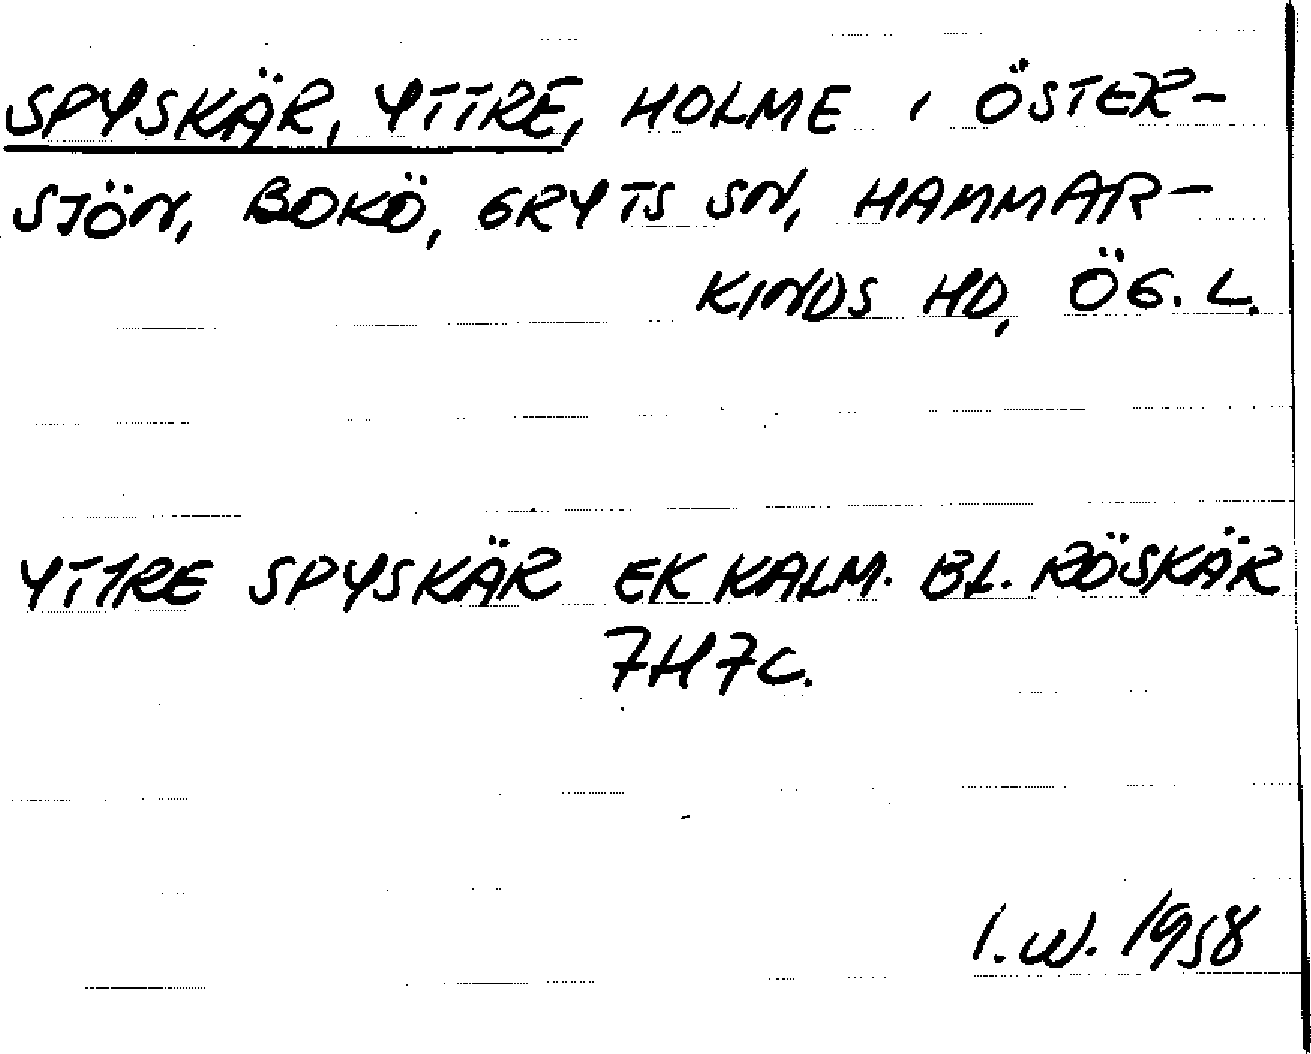 SPYSKÄR, YTTRE, HOLME I ÖSTER-
SJÖN, BOKÖ, GRYTS SN, HAMMAR-
KINDS HD, ÖG. L.
YTTRE SPYSKÄR EK KALM. BL. RÖSKÄR
7H7C.
I.W. 1958